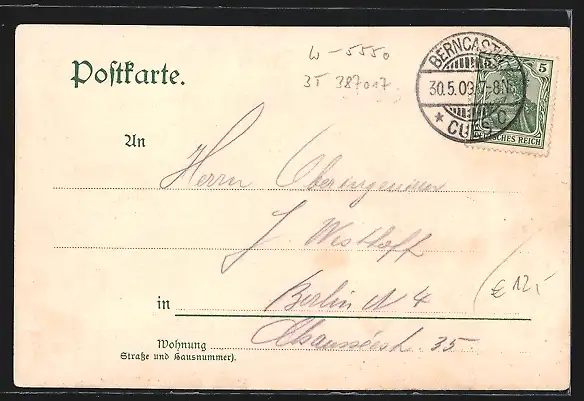 W-5550
3T 387017
Postkarte.
BERNCASTEL
30.5.09.7-8N.
* CUES C.
5
DEUTSCHES REICH
An
Herrn Oberingenieur
J. Westhoff
€ 12,-
in Berlin N 4
Wohnung Chausséestr. 35.
Straße und Hausnummer).